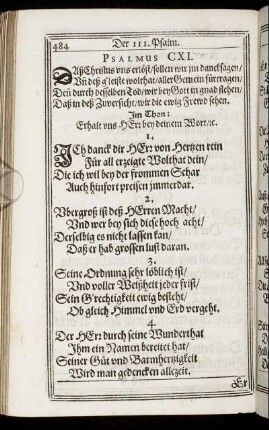 484
Der III. Psalm.
PSALMUS CXI.
DAß Christus vns erlöst/ sollen wir jm danck sagen/
Vñ deß g'leiste wolthat/ aller Gemein fürtragen/
Deñ durch desselben Tod/ wir bey Gott in gnad stehen/
Daß in deß Zuversicht/ wir die ewig Frewd sehen.
Im Thon:
Erhalt vns HErr bey deinem Wort/ ꝛc.
1.
ICh danck dir HErr von Hertzen rein
Für all erzeigte Wolthat dein/
Die ich wil bey der frommen Schar
Auch hinfort preisen jmmerdar.
2.
Vbergroß ist deß HErren Macht/
Vnd wer bey sich diese hoch acht/
Derselbig es nicht lassen kan/
Daß er hab grossen lust daran.
3.
Seine Ordnung sehr löblich ist/
Vnd voller Weißheit jeder frist/
Sein G'rechtigkeit ewig besteht/
Ob gleich Himmel vnd Erd vergeht.
4.
Der HErr durch seine Wunderthat
Ihm ein Namen bereitet hat/
Seiner Güt vnd Barmhertzigkeit
Wird man gedencken allezeit.
Er